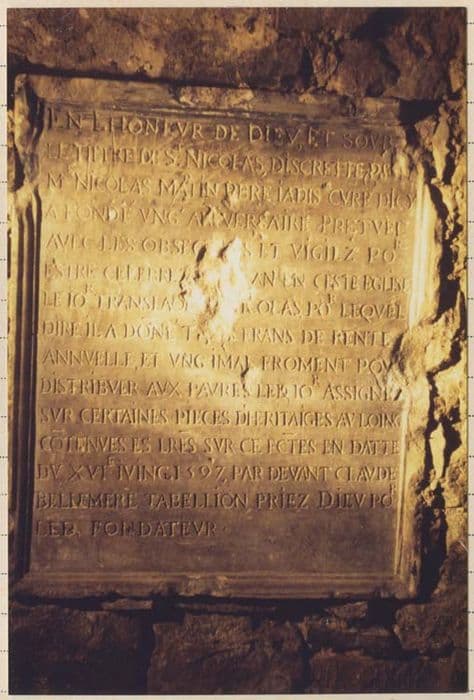 EN LHONEVR DE DIEV, ET SOVB
LE TITRE DE St NICOLAS, DISCRETTE PER
Me NICOLAS MATHIN PBRE IADIS CVRE DIO
A FONDE VNG ANIVERSAIRE PPETVEL
AVEC LES OBSEQVES ET VIGILZ POR
ESTRE CELEBREZ AN EN CESTE EGLISE
LE IOR TRANSLA NICOLAS POR LEQVEL
DIRE IL A DONE FRANS DE RENTE
ANNVELLE, ET VNG IMAL FROMENT POVR
DISTRIBVER AVX PAVRES LED IOR ASSIGNEZ
SVR CERTAINES PIECES DHERITAIGES AV LOING
CÕTENVES ES LRES SVR CE FCTES EN DATTE
DV XVIe IVING 1597, PAR DEVANT CLAVDE
BELLEMERE TABELLION PRIEZ DIEV POR
LED, FONDATEVR